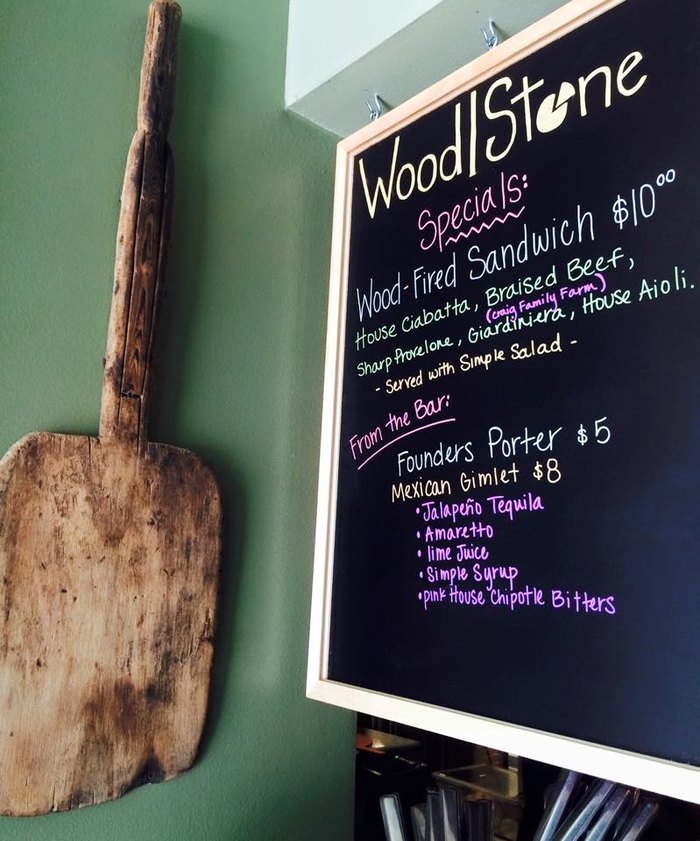 Wood|Stone
Specials:
Wood-Fired Sandwich $10⁰⁰
House Ciabatta, Braised Beef,
(Craig Family Farm)
Sharp Provelone, Giardiniera, House Aioli.
- Served with Simple Salad -
From the Bar:
Founders Porter $5
Mexican Gimlet $8
• Jalapeño Tequila
• Amaretto
• lime Juice
• Simple Syrup
• pink House Chipotle Bitters